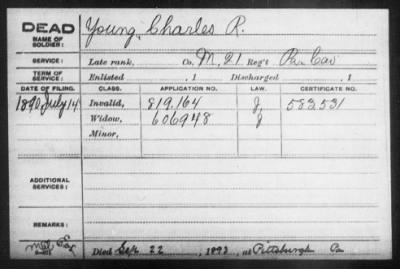 DEAD
NAME OF SOLDIER: Young, Charles R.
SERVICE: Late rank, Co. M, 21 Reg't Pa Cav
TERM OF SERVICE: Enlisted , 1 Discharged , 1
DATE OF FILING. CLASS. APPLICATION NO. LAW. CERTIFICATE NO.
1890 July 14 Invalid, 819.164 J 582531
Widow, 606948 J
Minor,
ADDITIONAL SERVICES:
REMARKS:
Died Sep 22, 1893, at Pittsburgh Pa